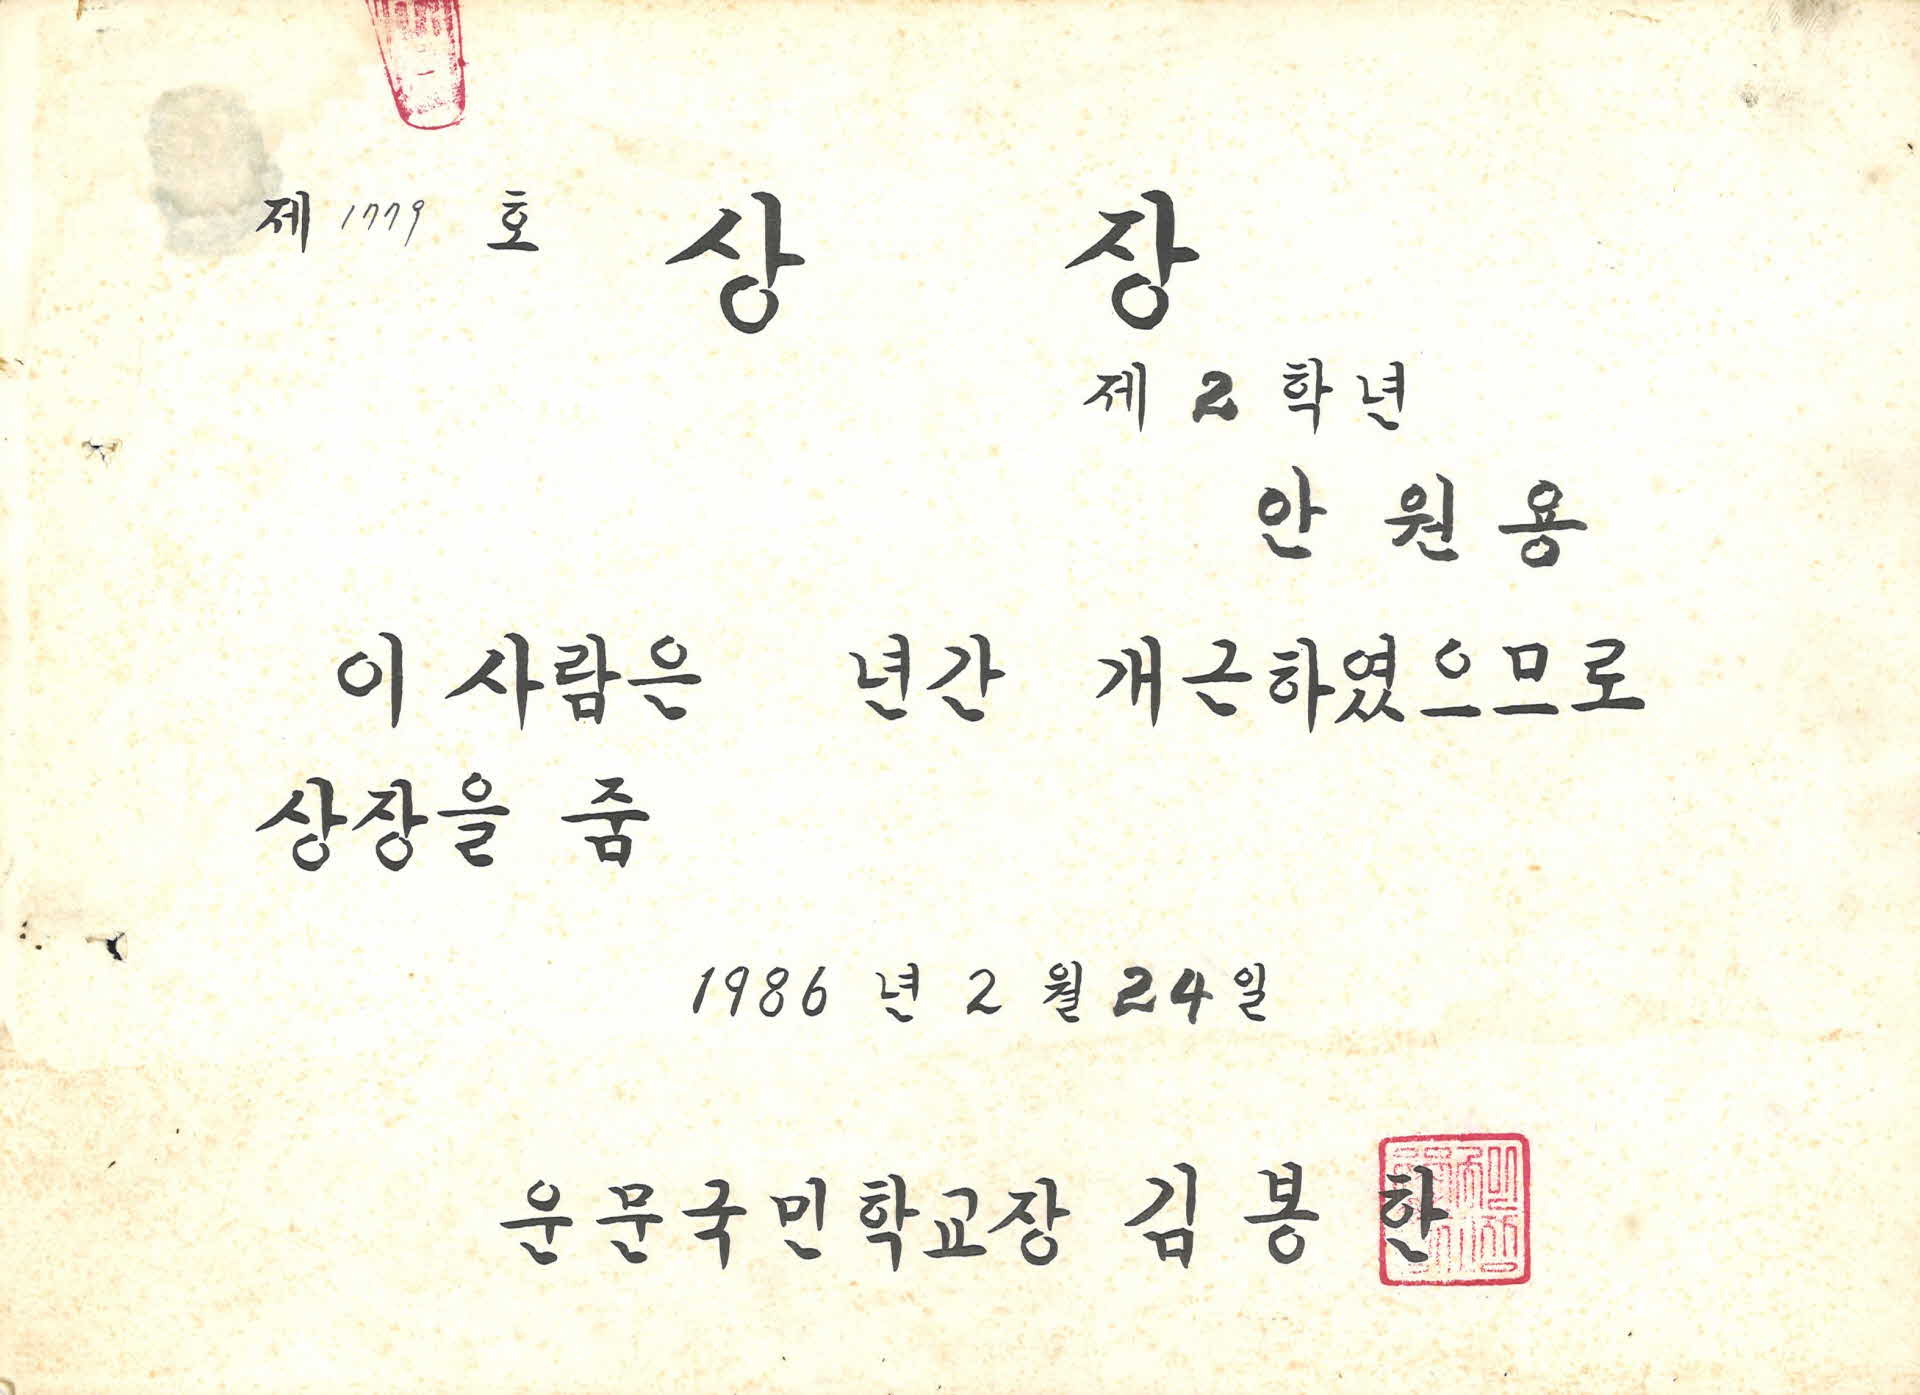 제 1779 호
상 장
제 2 학년
안 원 용
이 사람은 년간 개근하였으므로
상장을 줌
1986 년 2 월 24 일
운문국민학교장 김 봉 한